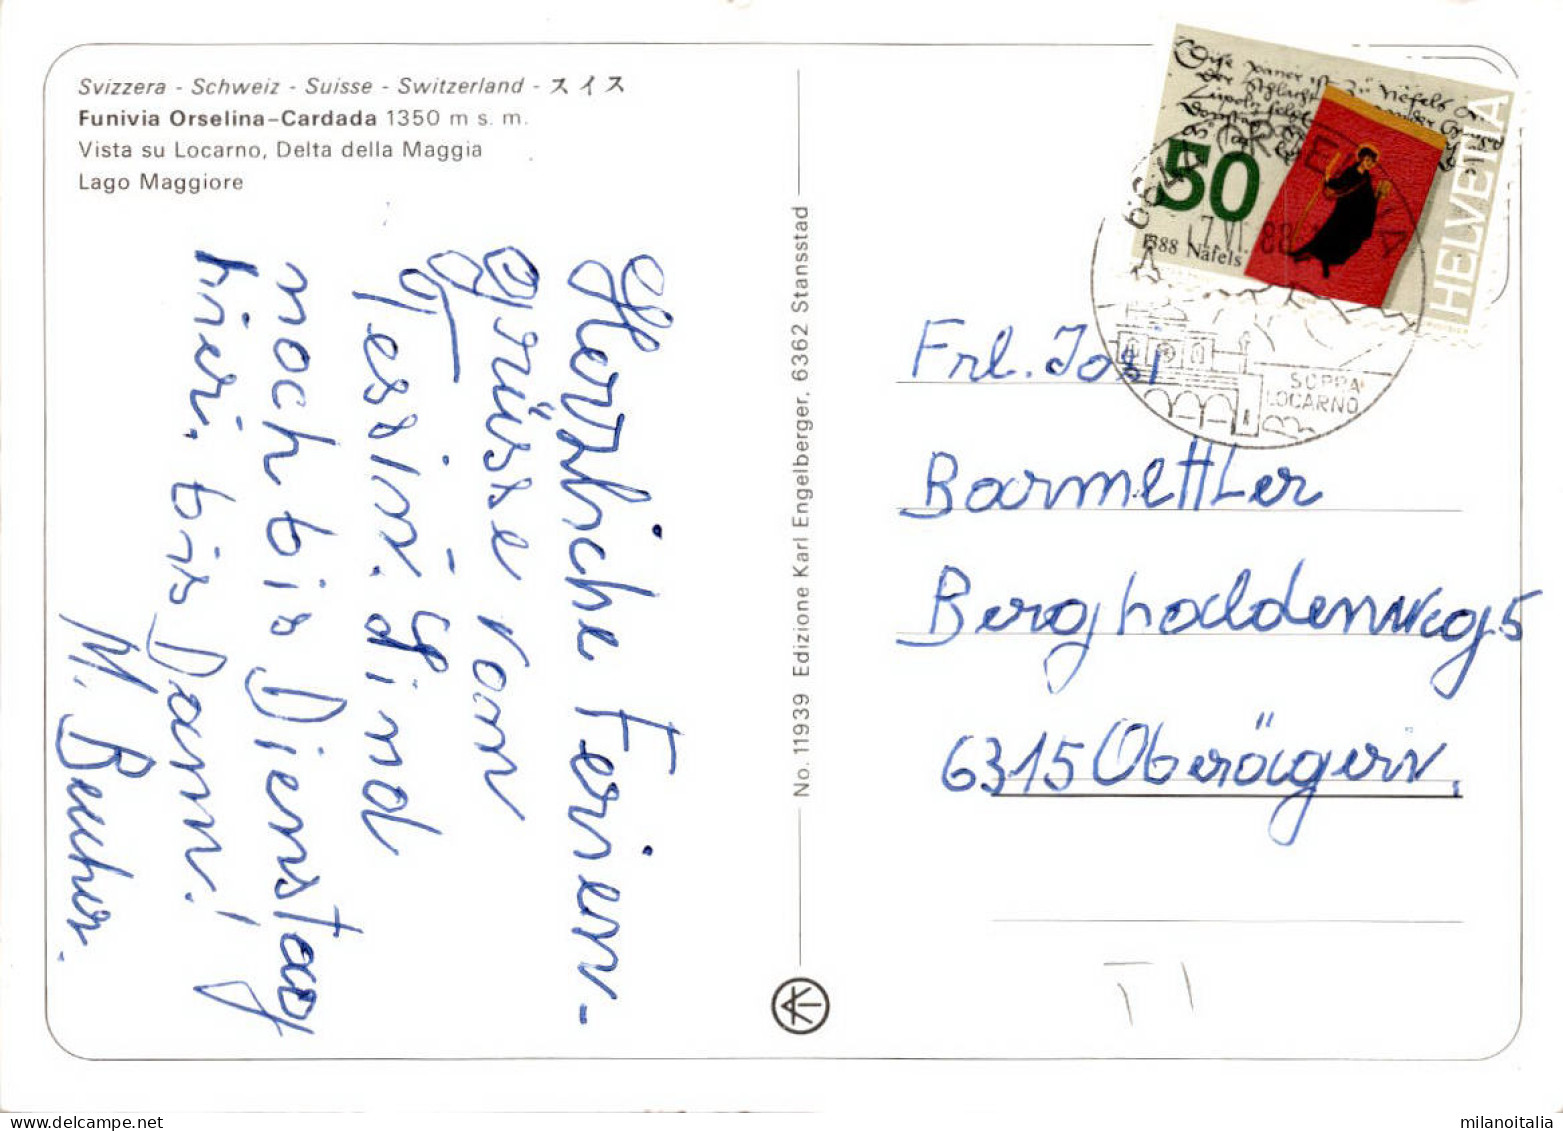 Svizzera - Schweiz - Suisse - Switzerland - スイス
Funivia Orselina-Cardada 1350 m s. m.
Vista su Locarno, Delta della Maggia
Lago Maggiore
Herzliche Ferien-
grüsse vom
Tessin. Sind
noch bis Dienstag
hier. bis Dann!
No. 11939 Edizione Karl Engelberger, 6362 Stansstad
50
1388 Näfels
HELVETIA
6644 ORSELINA
17.VI.88
SOPRA
LOCARNO
Frl. Josi
Barmettler
Berghaldenweg 5
6315 Oberägeri.
TI
milanoitalia